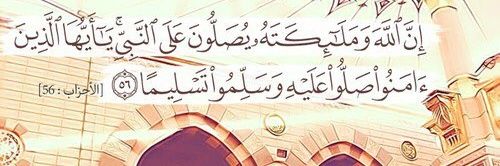 إِنَّ ٱللَّهَ وَمَلَٰٓئِكَتَهُۥ يُصَلُّونَ عَلَى ٱلنَّبِيِّۚ يَٰٓأَيُّهَا ٱلَّذِينَ
ءَامَنُوا۟ صَلُّوا۟ عَلَيْهِ وَسَلِّمُوا۟ تَسْلِيمًا ٥٦ [الأحزاب : 56]